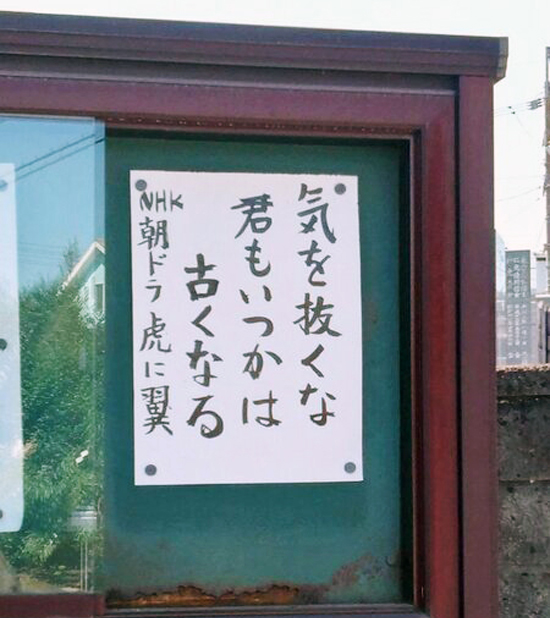 気を抜くな
君もいつかは
古くなる
NHK朝ドラ 虎に翼